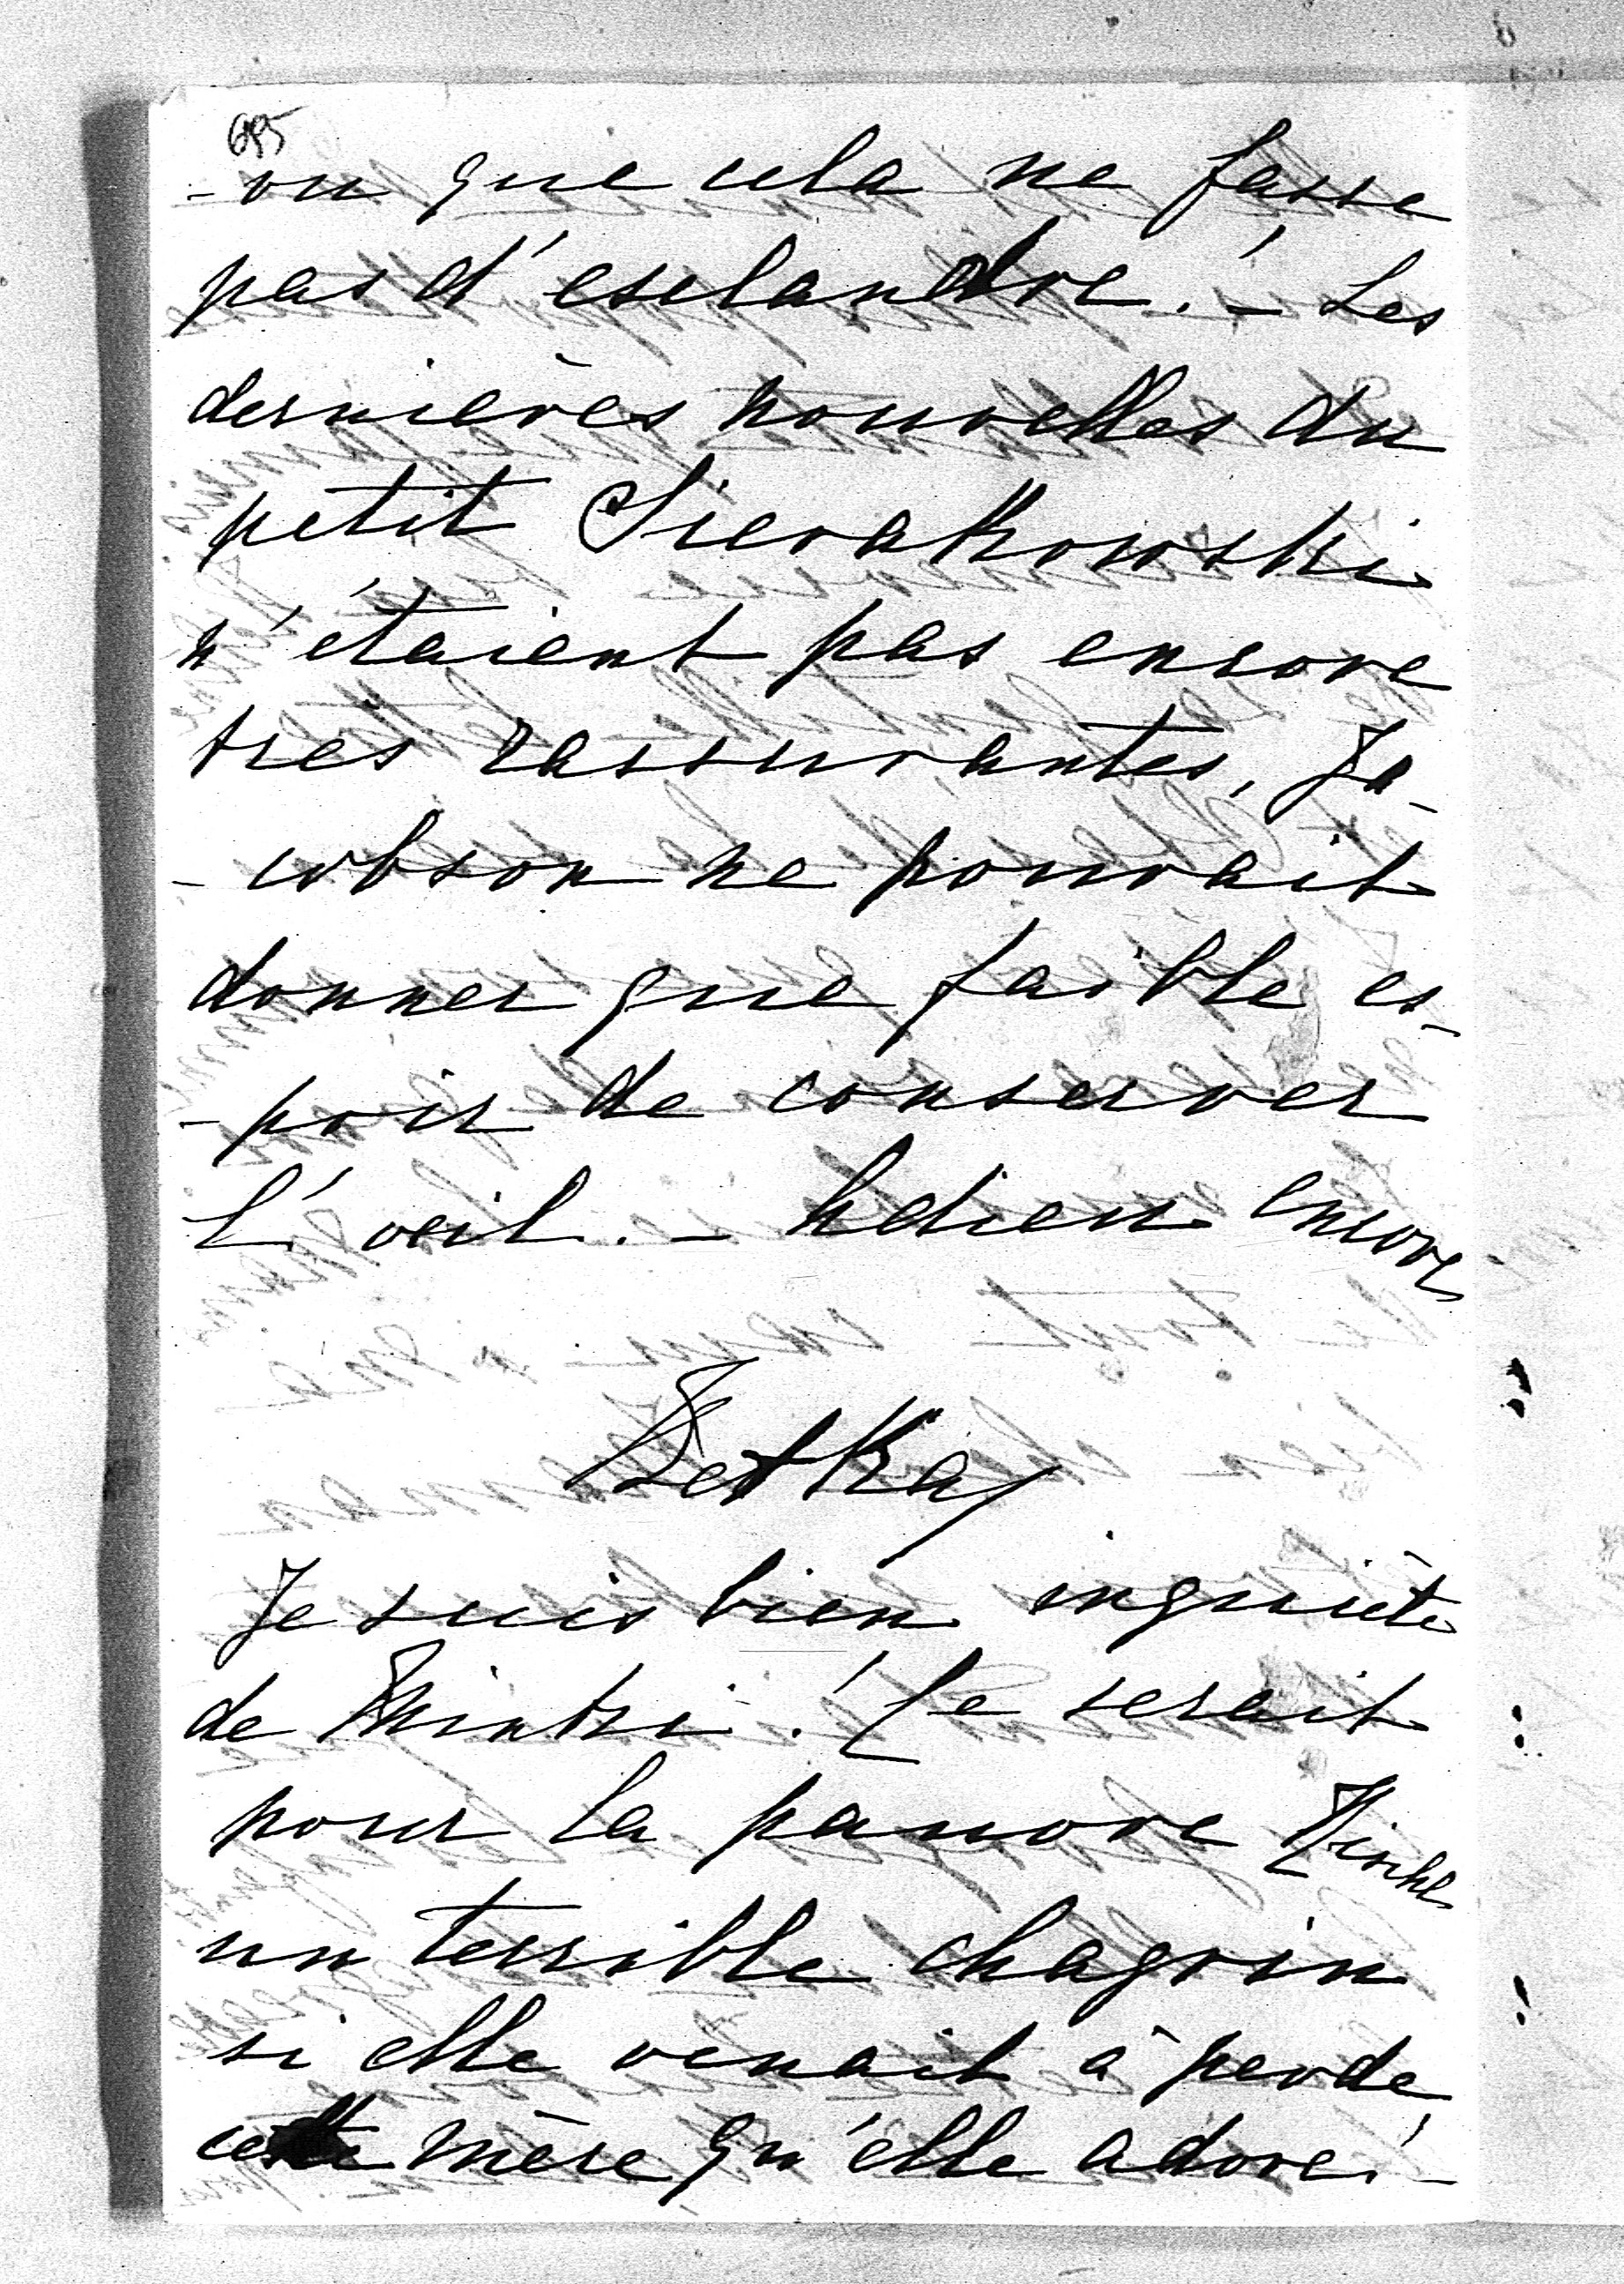 695
- ou que cela ne fasse
pas d'esclandre! - Les
dernières nouvelles du
petit Sierakowski
n'étaient pas encore
très rassurantes, Ja-
- cobson ne pouvait
donner que faible es-
- poir de conserver
l'oeil. - Adieu encore
Betka
Je suis bien inquiète
de Mintzi! Ce serait
pour la pauvre
un terrible chagrin
si elle venait à perde
cette mère qu'elle adore! -